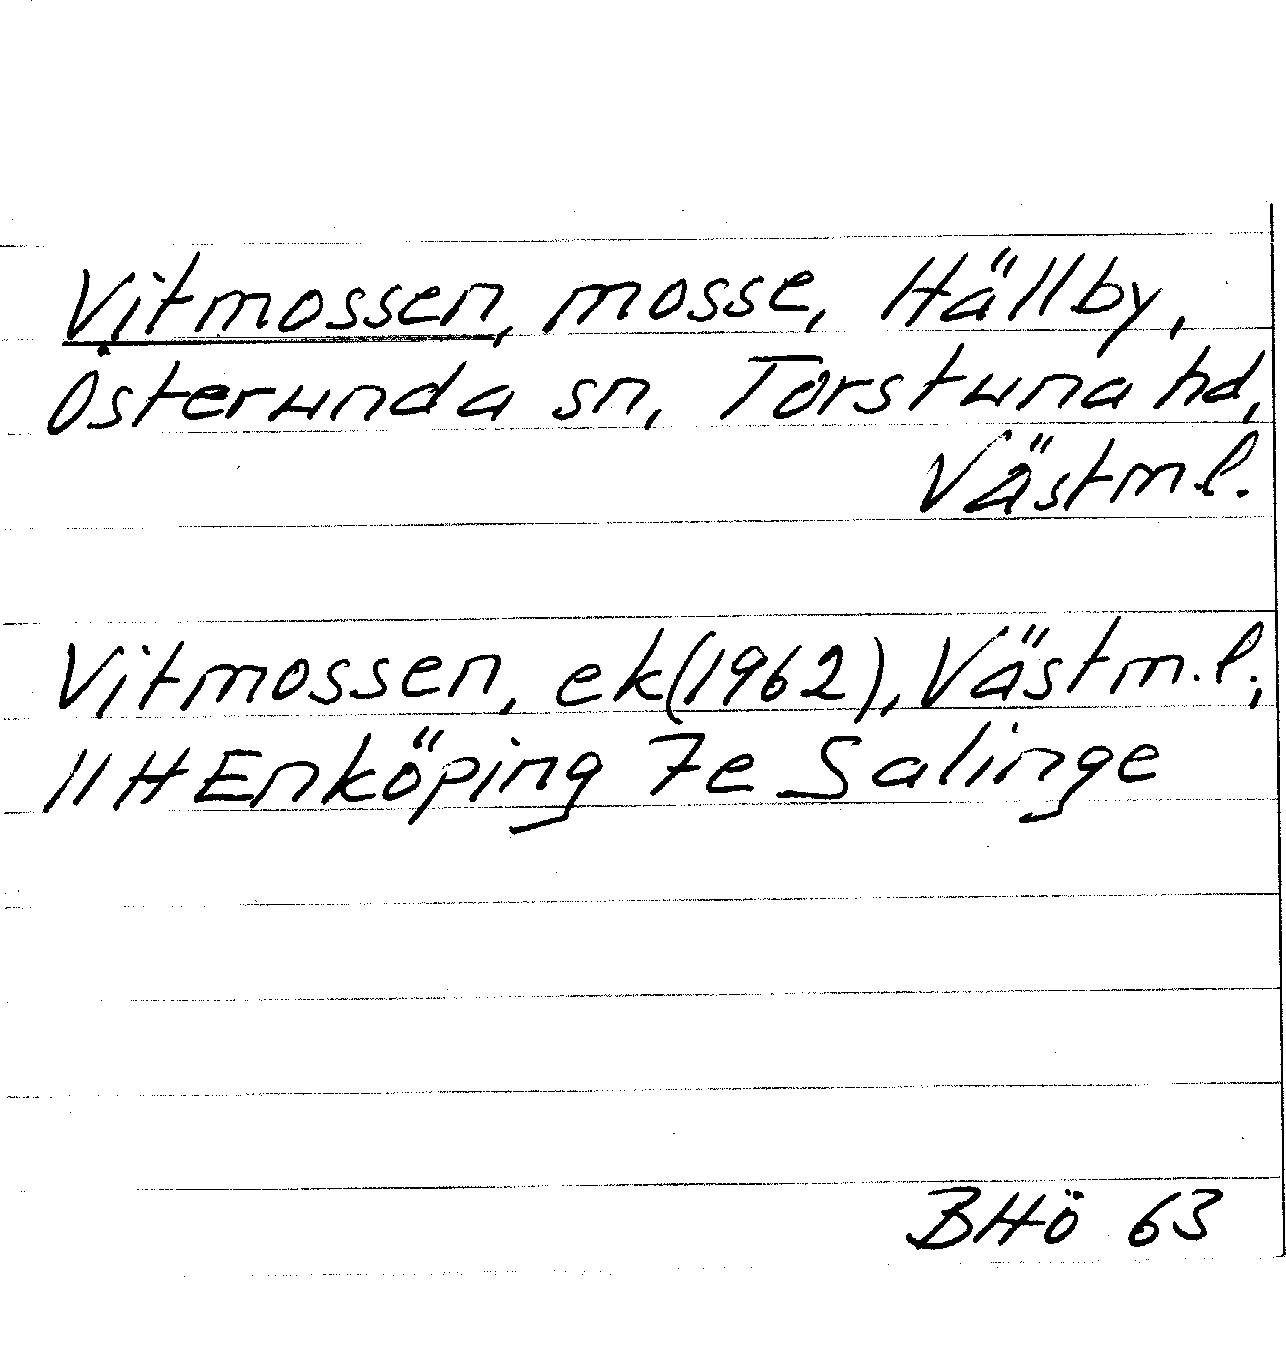 Vitmossen, mosse, Hällby,
Österunda sn, Torstuna hd,
Västm.l.
Vitmossen, ek(1962), Västm.l;
11H Enköping 7e Salinge
BHö 63